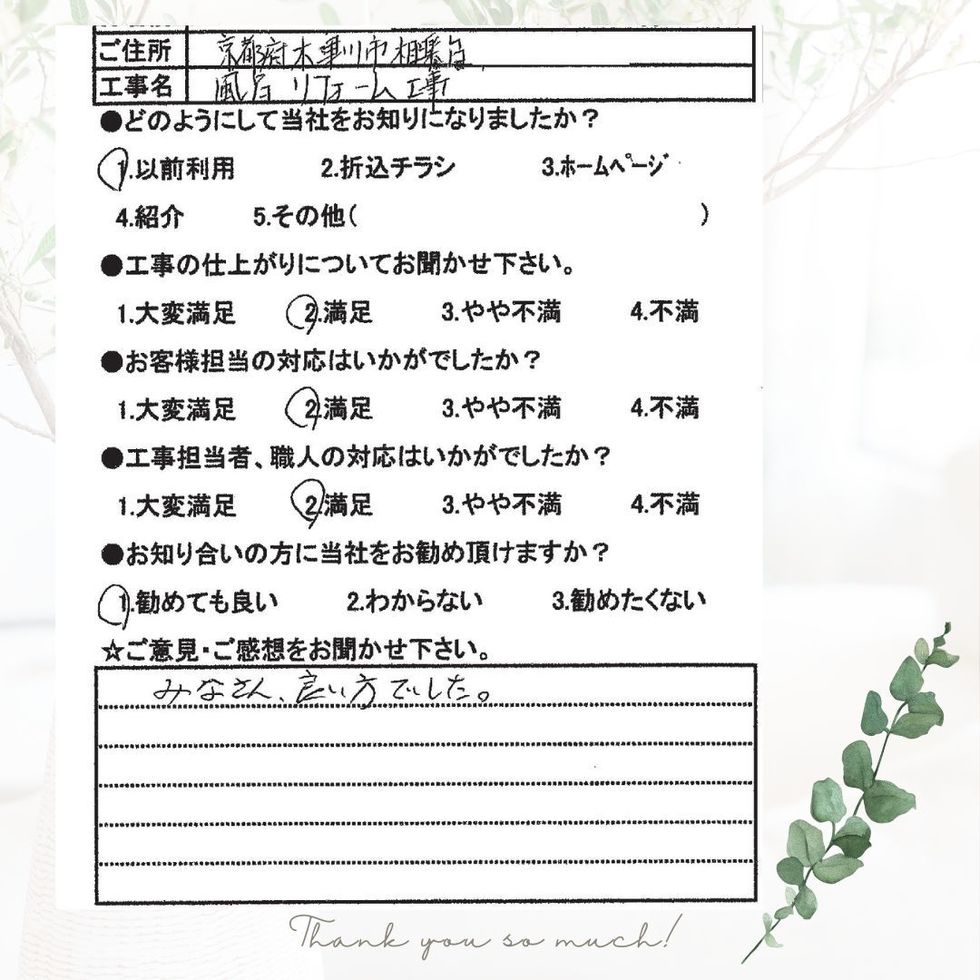 ご住所 京都府木津川市相楽台
工事名 風呂リフォーム工事
●どのようにして当社をお知りになりましたか?
1.以前利用 2.折込チラシ 3.ホームページ
4.紹介 5.その他( )
●工事の仕上がりについてお聞かせ下さい。
1.大変満足 2.満足 3.やや不満 4.不満
●お客様担当の対応はいかがでしたか?
1.大変満足 2.満足 3.やや不満 4.不満
●工事担当者、職人の対応はいかがでしたか?
1.大変満足 2.満足 3.やや不満 4.不満
●お知り合いの方に当社をお勧め頂けますか?
1.勧めても良い 2.わからない 3.勧めたくない
☆ご意見・ご感想をお聞かせ下さい。
みなさん、良い方でした。
Thank you so much!